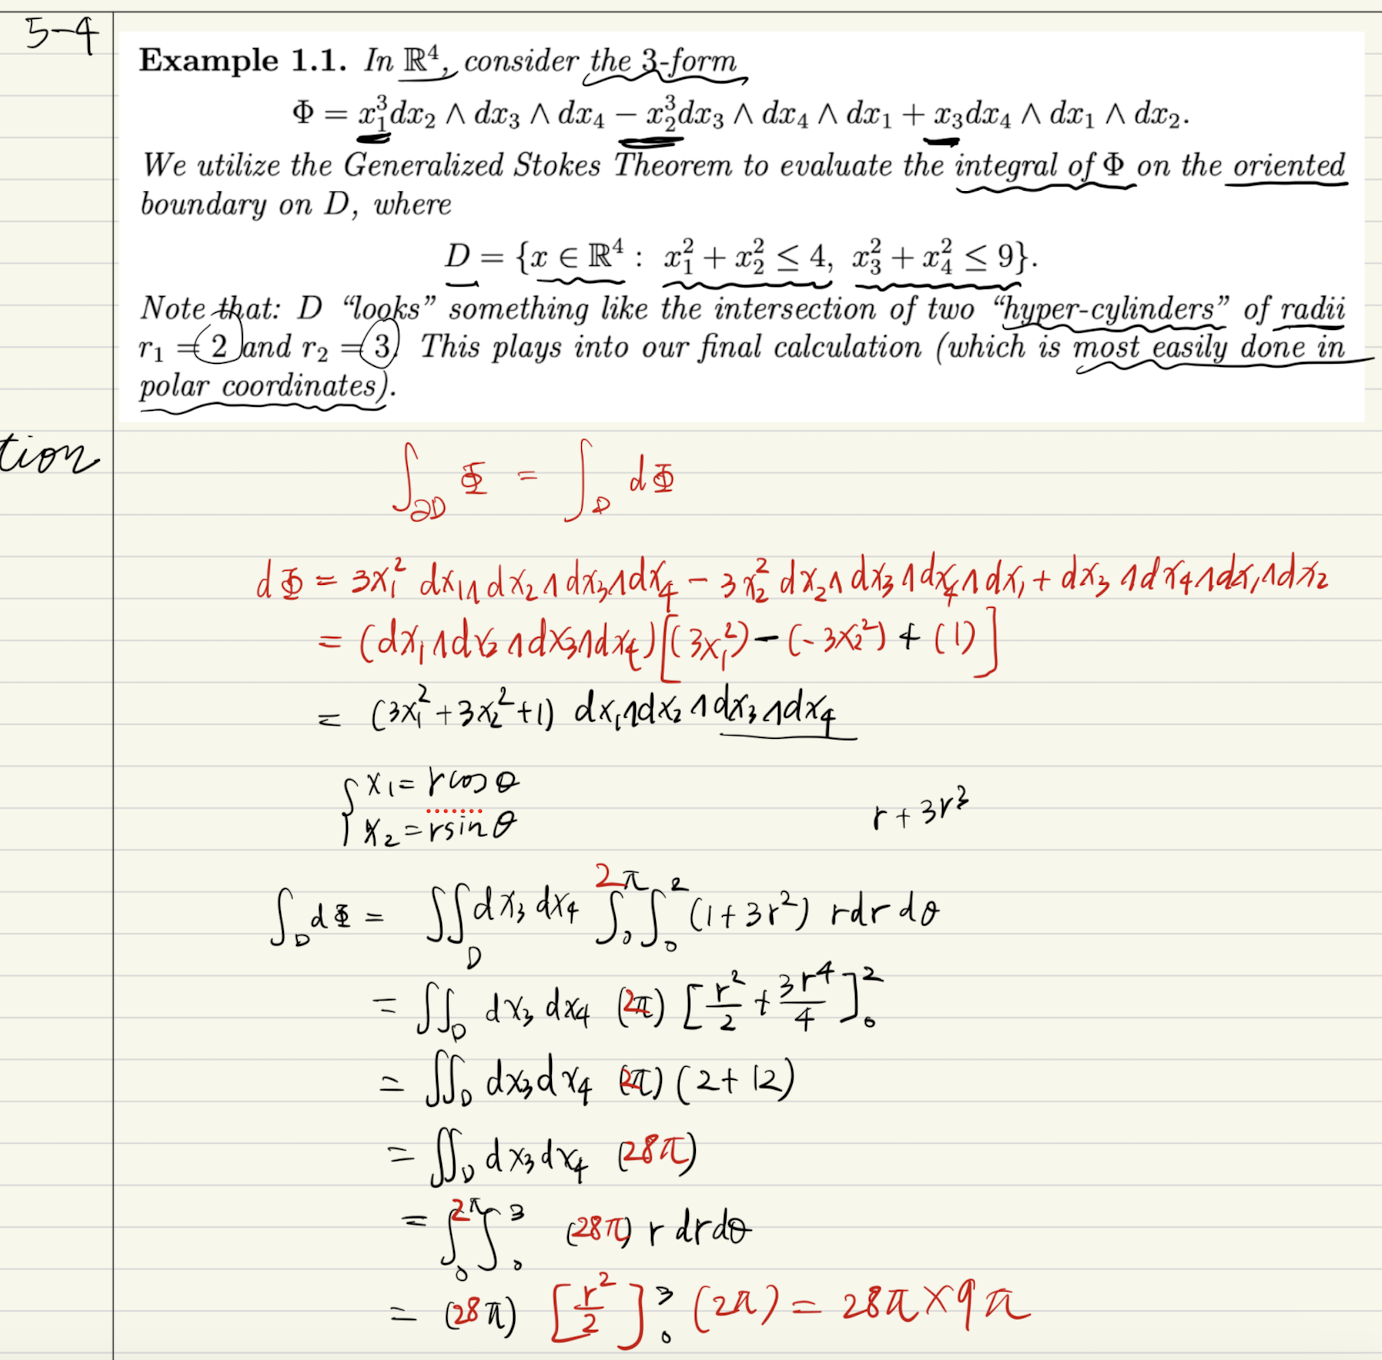 5-4
Example 1.1. In ℝ⁴, consider the 3-form
Φ = x₁³dx₂ ∧ dx₃ ∧ dx₄ − x₂³dx₃ ∧ dx₄ ∧ dx₁ + x₃dx₄ ∧ dx₁ ∧ dx₂.
We utilize the Generalized Stokes Theorem to evaluate the integral of Φ on the oriented
boundary on D, where
D = {x ∈ ℝ⁴ : x₁² + x₂² ≤ 4, x₃² + x₄² ≤ 9}.
Note that: D “looks” something like the intersection of two “hyper-cylinders” of radii
r₁ = 2 and r₂ = 3. This plays into our final calculation (which is most easily done in
polar coordinates).
tion
∫_∂D Φ = ∫_D dΦ
dΦ = 3x₁² dx₁∧dx₂∧dx₃∧dx₄ − 3x₂² dx₂∧dx₃∧dx₄∧dx₁ + dx₃∧dx₄∧dx₁∧dx₂
= (dx₁∧dx₂∧dx₃∧dx₄)[(3x₁²) − (−3x₂²) + (1)]
= (3x₁² + 3x₂² + 1) dx₁∧dx₂∧dx₃∧dx₄
{ x₁ = r cos θ
x₂ = r sin θ
r + 3r³
∫_D dΦ = ∬_D dx₃ dx₄ ∫₀^2π ∫₀² (1 + 3r²) r dr dθ
= ∬_D dx₃ dx₄ (2π) [r²/2 + 3r⁴/4]₀²
= ∬_D dx₃ dx₄ (2π) (2 + 12)
= ∬_D dx₃ dx₄ (28π)
= ∫₀^2π ∫₀³ (28π) r dr dθ
= (28π) [r²/2]₀³ (2π) = 28π × 9π